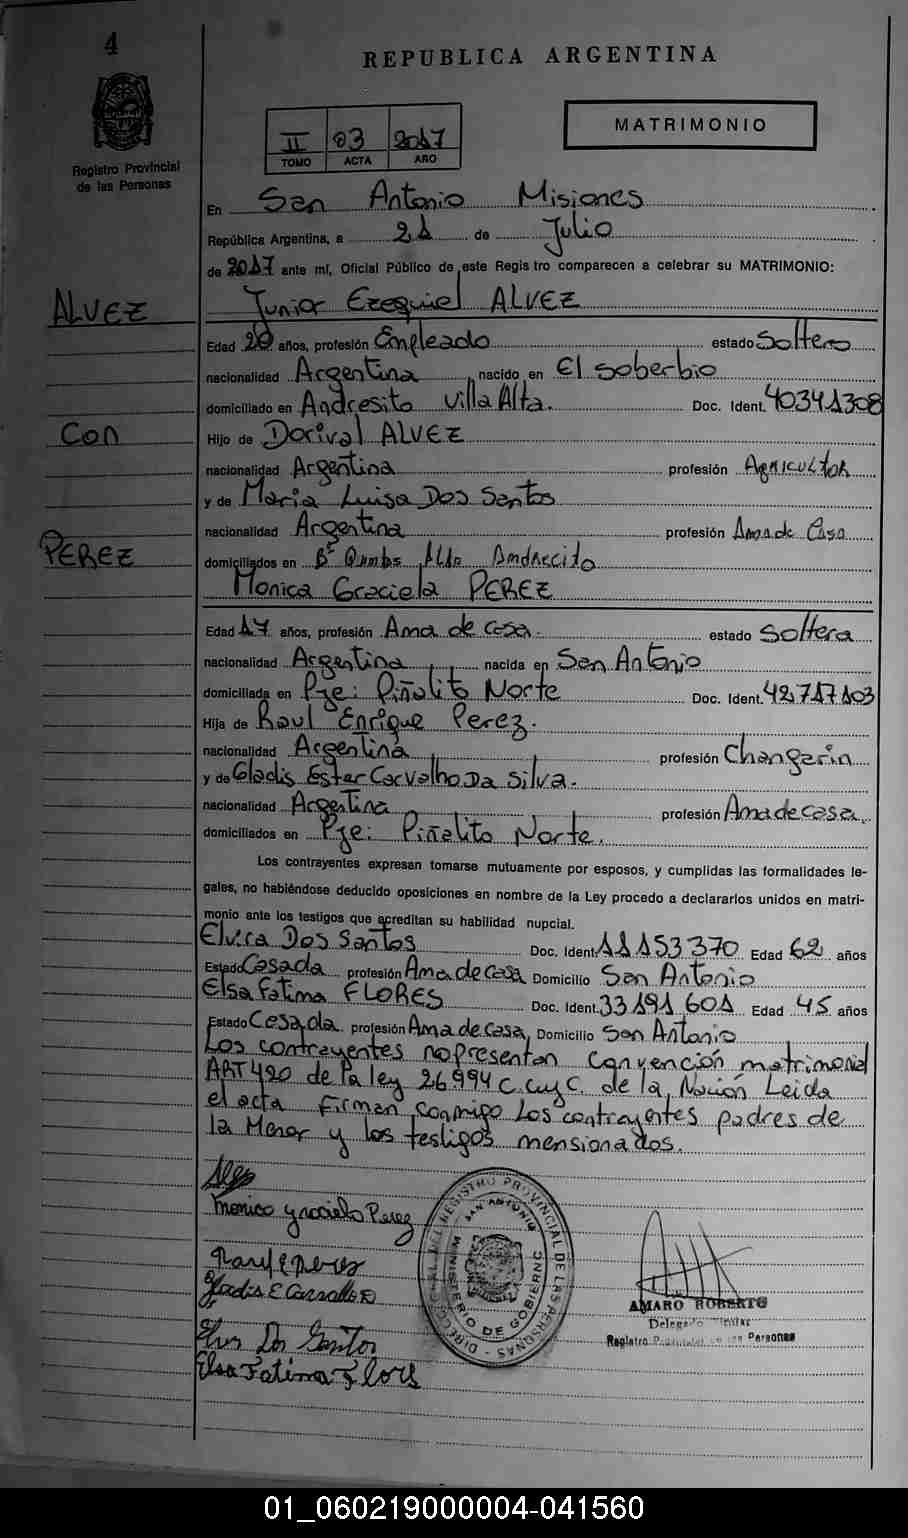 4
REPUBLICA ARGENTINA
Registro Provincial
de las Personas
II 03 2017
TOMO ACTA AÑO
MATRIMONIO
En San Antonio Misiones
República Argentina, a 21 de Julio
de 2017 ante mí, Oficial Público de este Registro comparecen a celebrar su MATRIMONIO:
ALVEZ
Junior Ezequiel ALVEZ
Edad 20 años, profesión Empleado estado Soltero
nacionalidad Argentina nacido en El soberbio
domiciliado en Andresito Villa Alta. Doc. Ident. 40341308
Con
Hijo de Dorival ALVEZ
nacionalidad Argentina profesión Agricultor
y de Maria Luisa Dos Santos
nacionalidad Argentina profesión Ama de Casa
PEREZ
domiciliados en Bº Alto Andrecito
Monica Graciela PEREZ
Edad 17 años, profesión Ama de casa. estado Soltera
nacionalidad Argentina nacida en San Antonio
domiciliada en Pje: Piñalito Norte Doc. Ident. 42.717.103
Hija de Raul Enrique Perez.
nacionalidad Argentina profesión Changarin
y de Gladis Ester Carvalho Da Silva.
nacionalidad Argentina profesión Ama de casa.
domiciliados en Pje: Piñalito Norte.
Los contrayentes expresan tomarse mutuamente por esposos, y cumplidas las formalidades le-
gales, no habiéndose deducido oposiciones en nombre de la Ley procedo a declararlos unidos en matri-
monio ante los testigos que acreditan su habilidad nupcial.
Elvira Dos Santos Doc. Ident. 11153370 Edad 62 años
Estado Casada profesión Ama de casa Domicilio San Antonio
Elsa Fatima FLORES Doc. Ident. 33191601 Edad 45 años
Estado Casada profesión Ama de casa Domicilio San Antonio
Los contrayentes no presentan convención matrimonial
ART 420 de la ley 26.994 C.C y C. de la Nación Leida
el acta firman conmigo Los contrayentes padres de
la Menor y los testigos mensionados.
Monica Graciela Perez
Elsa Fatima Flores
DIRECCION GRAL. DEL REGISTRO PROVINCIAL DE LAS PERSONAS
SAN ANTONIO
MINISTERIO DE GOBIERNO
AMARO ROBERTO
Delegado Titular
Registro Provincial de las Personas
01_060219000004-041560